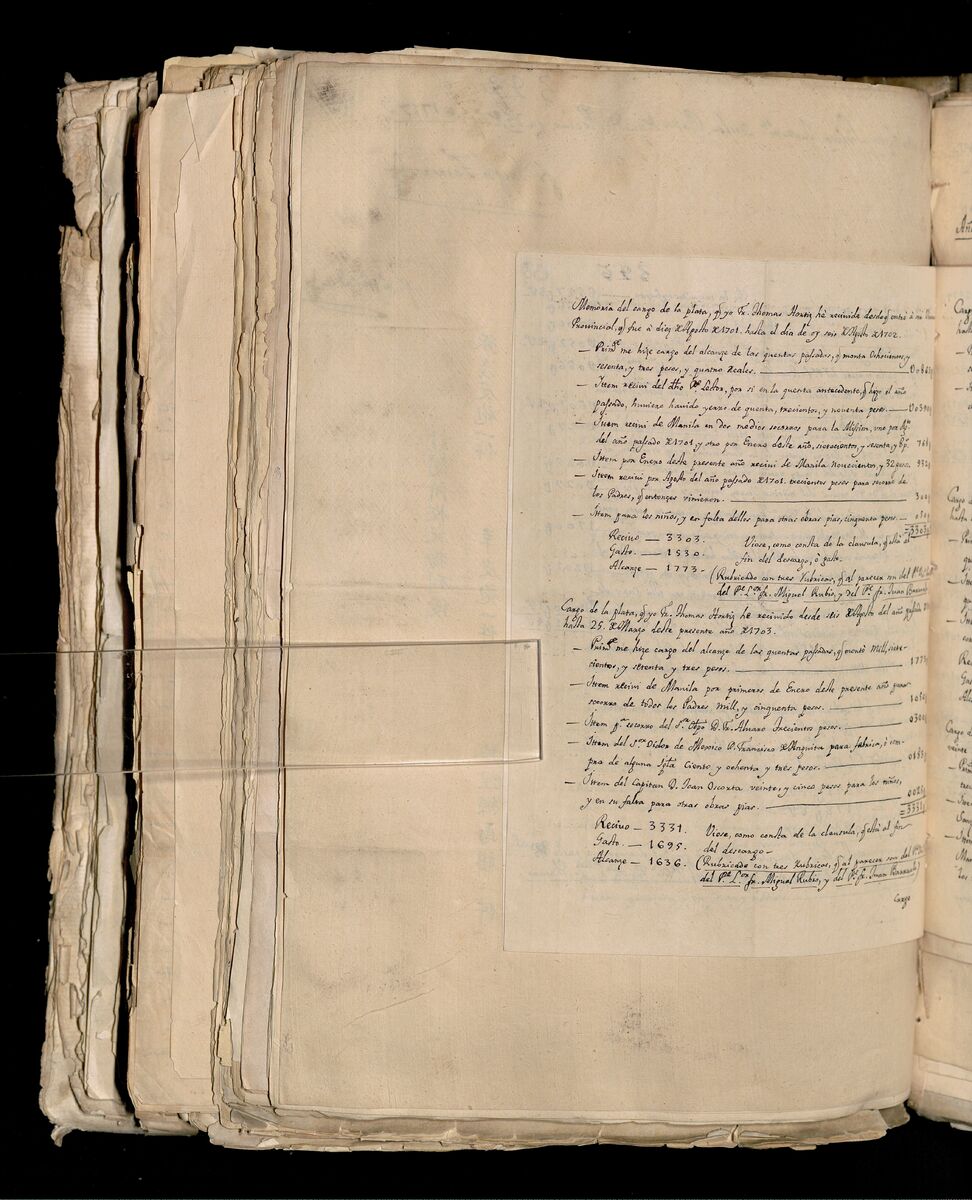 Memoria del cargo de la plata, q̃ yo Fr. Thomas Hortiz hè recivido desde q̃ entrè à
Provincial, q̃ fue à diez de Agosto de 1701. hasta el dia de oy seis de Agosto de 1702.
— Prim.te me hize cargo del alcanze de las quentas passadas, q̃ monta Ochocientos, y
sesenta, y tres pesos, y quatro reales. — 00863
— Ittem recivi del dho P.e Lector, por si en la quenta antecedente, q̃ hizo el año
passado, huviere havido yerro de quenta, trecientos, y noventa pesos. — 00390
— Ittem recivi de Manila en dos medios socorros para la Mission, uno por Ag.to
del año passado de 1701, y otro por Enero deste año, setecientos, y sesenta, y 8 p. 768
— Ittem por Enero deste presente año recivi de Manila novecientos, y 32 pesos. 932
— Ittem recivi por Agosto del año passado de 1701. trecientos pesos para socorro de
los Padres, q̃ entonzes vinieron. — 300
— Ittem para los niños, y en falta dellos para otras obras pias, cinquenta pesos. — 050
=3303
Recivo — 3303. Viose, como consta de la clausula, q̃ està al
Gasto. — 1530. fin del descargo, ò gasto.
Alcanze — 1773 - (Rubricado con tres Rubricas, q̃ al parecer son del
del P.e L.or fr. Miguel Rubio, y del P.e fr. Juan
Cargo de la plata, q̃ yo Fr. Thomas Hortiz hè recivido desde seis de Agosto del año passado
hasta 25. de Marzo deste presente año de 1703.
— Prim.te me hize cargo del alcanze de las quentas passadas, q̃ montò Mill, sete-
cientos, y setenta y tres pesos. — 1773
— Ittem recivi de Manila por primeros de Enero deste presente año para
socorro de todos los Padres Mill, y cinquenta pesos. — 1050
— Ittem p.a socorro del S.or Obpo D. Fr. Alvaro Trecientos pesos. — 0300
— Ittem del S.or Oidor de Mexico D. Francisco de Anguita para fabrica, ò com-
pra de alguna Igla Ciento y ochenta y tres pesos. — 0183
— Ittem del Capitan D. Joan Discorta veinte, y cinco pesos para los niños,
y en su falta para otras obras pias. — 0025
=3331
Recivo — 3331. Viose, como consta de la clausula, q̃ està al fin
Gasto. — 1695. del descargo -
Alcanze — 1636. (Rubricado con tres Rubricas, q̃ al parecer son del
del P.e L.or fr. Miguel Rubio, y del P.e fr. Juan
Cargo